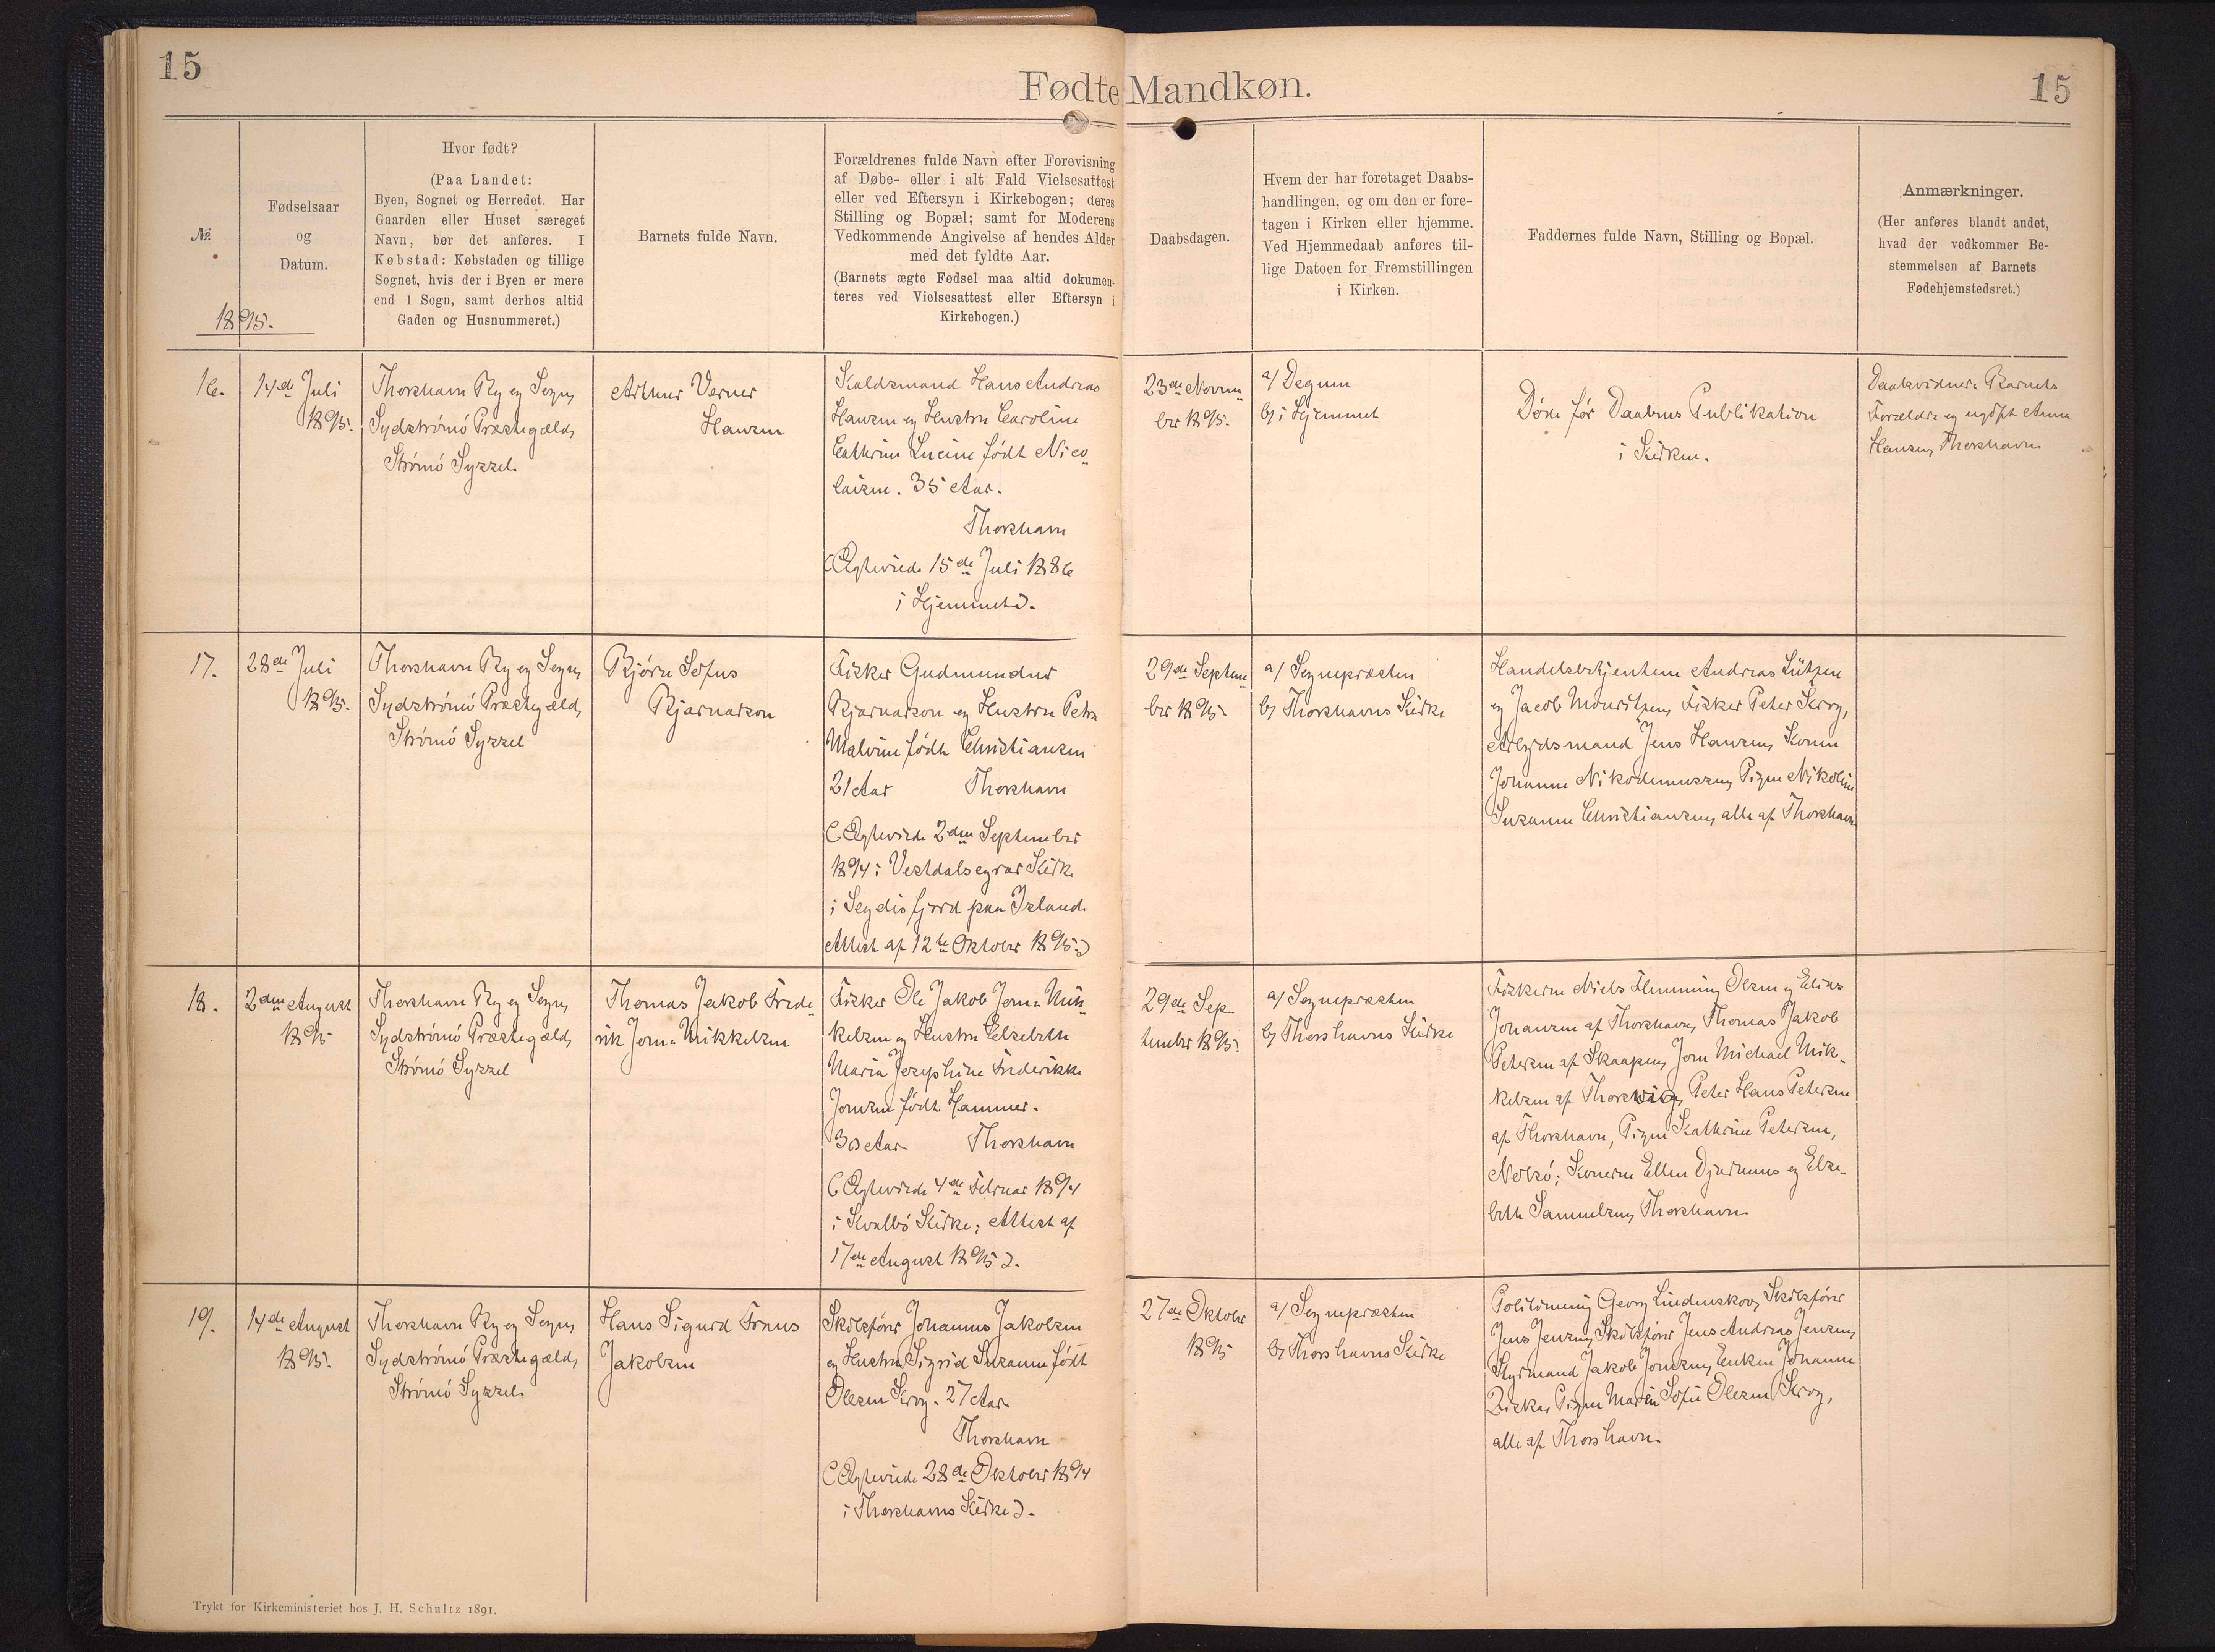 15
Fødte Mandkøn.
15
№
1895.
Fødselsaar
og
Datum.
Hvor født?
(Paa Landet:
Byen, Sognet og Herredet. Har
Gaarden eller Huset særeget
Navn, bør det anføres. I
Købstad: Købstaden og tillige
Sognet, hvis der i Byen er mere
end 1 Sogn, samt derhos altid
Gaden og Husnummeret.)
Barnets fulde Navn.
Forældrenes fulde Navn efter Forevisning
af Døbe- eller i alt Fald Vielsesattest
eller ved Eftersyn i Kirkebogen; deres
Stilling og Bopæl; samt for Moderens
Vedkommende Angivelse af hendes Alder
med det fyldte Aar.
(Barnets ægte Fødsel maa altid dokumen-
teres ved Vielsesattest eller Eftersyn i
Kirkebogen.)
Daabsdagen.
Hvem der har foretaget Daabs-
handlingen, og om den er fore-
tagen i Kirken eller hjemme.
Ved Hjemmedaab anføres til-
lige Datoen for Fremstillingen
i Kirken.
Faddernes fulde Navn, Stilling og Bopæl.
Anmærkninger.
(Her anføres blandt andet,
hvad der vedkommer Be-
stemmelsen af Barnets
Fødehjemstedsret.)
16.
14de Juli
1895.
Thorshavn By og Sogn,
Sydstrømø Præstegæld,
Strømø Syssel.
Arthur Verner
Hansen
Hans Andreas
Hansen og Hustru Caroline
Cathrine Lucine født Nico-
laisen. 35 Aar.
Thorshavn
(Ægteviede 15de Juli 1886
i Hjemmet).
23de Novem-
ber 1895.
a/ Degnen
b/ i Hjemmet
Døde før Daabens Publikation
i Kirken.
Daabsvidner: Barnets
Forældre og ugift Anna
Hansen, Thorshavn.
17.
28de Juli
1895.
Thorshavn By og Sogn,
Sydstrømø Præstegæld,
Strømø Syssel
Bjørn Sofus
Bjarnarson
Fisker Gudmundur
Bjarnarson og Hustru Petra
Malvine født Christiansen
21 Aar Thorshavn
(Ægteviede 2den September
1894 i Vestdalseyrar Kirke
i Seydisfjord paa Island.
Attest af 12te Oktober 1895.)
29de Septem-
ber 1895.
a/ Sognepræsten
b/ Thorshavns Kirke
Handelsbetjentene Andreas Lützen
og Jacob Mouritzen, Fisker Peter Krog,
Arbejdsmand Jens Hansen, Konen
Johanne Nikodemussen, Pigen Nikoline
Susanne Christiansen, alle af Thorshavn.
18.
2den August
1895
Thorshavn By og Sogn,
Sydstrømø Præstegæld,
Strømø Syssel
Thomas Jakob Frede-
rik Joen-Mikkelsen
Fisker Ole Jakob Joen-Mik-
kelsen og Hustru Elsebeth
Maria Josephine Frederikke
Joensen født Hammer.
30 Aar. Thorshavn
(Ægteviede 4de Februar 1894
i Kvalbø Kirke; Attest af
17de August 1895).
29de Sep-
tember 1895.
a/ Sognepræsten
b/ Thorshavns Kirke
Fiskerne Niels Flemming Olsen og Elias
Johansen af Thorshavn, Thomas Jakob
Petersen af Skaapen, Joen Michael Mik-
kelsen af Thorsvig, Peter Hans Petersen
af Thorshavn, Pigen Kathrine Petersen,
Nolsø; Konerne Ellen Djurhuus og Else-
beth Samuelsen, Thorshavn.
19.
14de August
1895.
Thorshavn By og Sogn,
Sydstrømø Præstegæld,
Strømø Syssel.
Hans Sigurd Frans
Jakobsen
Skibsfører Johannes Jakobsen
og Hustru Sigrid Susanne født
Olesen Krog. 27 Aar.
Thorshavn
(Ægteviede 28de Oktober 1894
i Thorshavns Kirke).
27de Oktober
1895
a/ Sognepræsten
b/ Thorshavns Kirke
Georg Lindenskov, Skibsfører
Jens Jensen, Skibsfører Jens Andreas Jensen,
Styrmand Jakob Joensen, Enken Johanne
Ziska, Pigen Maria Sofie Olesen Krog,
alle af Thorshavn.
Trykt for Kirkeministeriet hos J. H. Schultz 1891.